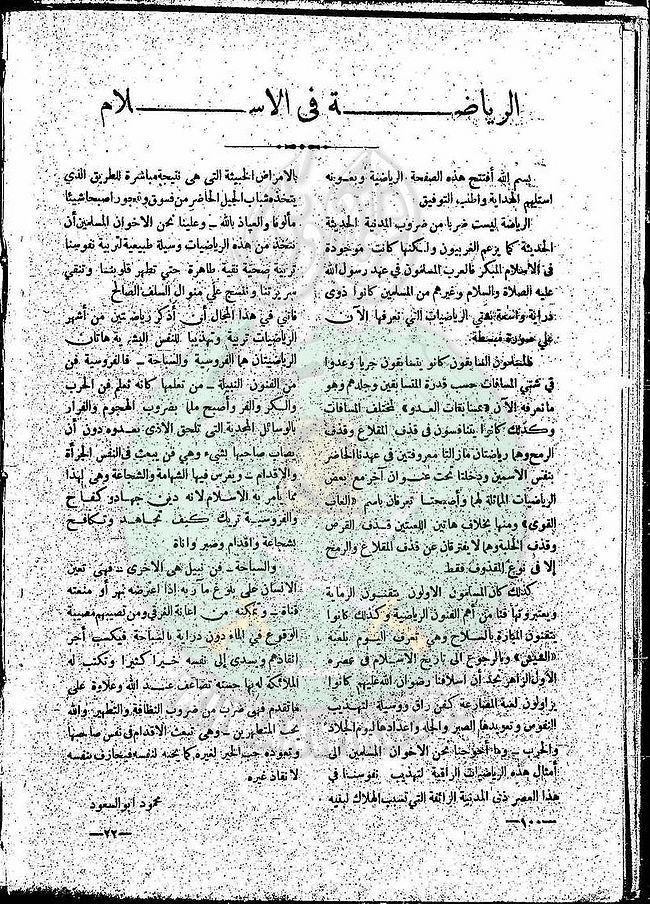 الرياضة في الاسلام
بسم الله أفتتح هذه الصفحة الرياضية وبعونه
استلهم الهداية واطلب التوفيق
الرياضة ليست ضربا من ضروب المدنية الحديثة
الحديثة كما يزعم الغربيون ولكنها كانت موجودة
فى الأسلام المبكر فالعرب المسلمون في عهد رسول الله
عليه الصلاة والسلام وغيرهم من المسلمين كانوا ذوى
دراية واسعة بشتى الرياضيات التي نعرفها الآن
على صورة مبسطة
فالمسلمون السابقون كانو يتسابقون جريا وعدوا
في شتى المسافات حسب قدرة المتسابقين وجلدهم وهو
ما نعرفه الآن «بمسابقات العدو» لمختلف المسافات
وكذلك كانوا يتنافسون في قذف المقلاع وقذف
الرمح وهما رياضتان مازالتا معروفتين في عهدنا الحاضر
بنفس الاسمين ودخلتا تحت عنوان آخر مع بعض
الرياضيات المماثلة لهما وأصبحتا تعرفان باسم «العاب
القوى» ومنها بخلاف هاتين اللعبتين قذف القرص
وقذف الجلة وهما لا يفترقان عن قذف المقلاع والرمح
إلا فى نوع المقذوف فقط
كذلك كان المسلمون الاولون يتقنون الرماية
ويعتبرونها فنا من أهم الفنون الرياضية وكذلك كانوا
يتقنون المبارزة بالسلاح وهى تعرف اليوم بلعبة
«الشيش» وبالرجوع الى تاريخ الاسلام فى عصره
الأول الزاهر نجد أن أسلافنا رضوان الله عليهم كانوا
يزاولون لعبة المصارعة كفن راق ووسيلة لتهذيب
النفوس وتعويدها الصبر والجلد واعدادها ليوم الجلاد
والحرب – وما أحوجنا نحن الاخوان المسلمين الى
أمثال هذه الرياضيات الراقية لتهذيب نفوسنا في
هذا العصر ذى المدنية الزائفة التي تسبب الهلاك لبنيه
— ١٠٠ —
بالامراض الخبيثة التى هى نتيجة مباشرة للطريق الذي
يتخذه شباب الجيل الحاضر من فسوق وفجور أصبحا شيئا
مألوفا والعياذ بالله – وعلينا نحن الاخوان المسلمين أن
نتخذ من هذه الرياضيات وسيلة طبيعية لتربية نفوسنا
تربية صحية نقية طاهرة حتي تطهر قلوبنا وتنقي
سريرتنا وننسج علي منوال السلف الصالح
فأنني في هذا المجال أن أذكر رياضتين من أشهر
الرياضيات تربية وتهذيبا للنفس البشرية هاتان
الرياضيتان هما الفروسية والسباحة – فالفروسية فن
من الفنون النبيلة – من تعلمها كأنه تعلم فن الحرب
والكر والفر وأصبح ملما بضروب الهجوم والفرار
بالوسائل المجدية التى تلحق الاذى بعدوه دون أن
يصاب صاحبها بشىء وهى فن يبعث في النفس الجرأة
والاقدام – ويغرس فيها الشهامة والشجاعة وهى لهذا
مما يأمر به الاسلام لانه دين جهاد وكفاح
والفروسية تريك كيف تجاهد وتكافح
بشجاعة واقدام وصبر واناة
والسباحة – فن نبيل هى الاخرى – فهى تعين
الانسان على بلوغ مآربه إذا اعترضه نهر أو منعته
قناة – وتمكنه من اعانة الغرقى ومن تصيبهم مصيبة
الوقوع في الماء دون دراية بالسباحة فيكسب أجر
انقاذهم ويسدى إلى نفسه خيرا كثيرا وتكتب له
الملائكة له بها حسنة تضاعف عند الله وعلاوة على
ما تقدم فهى ضرب من ضروب النظافة والتطهير والله
يحب المتطهرين – وهى تبعث الاقدام في نفس صاحبها
وتعوده حب الخير لغيره كما يحبه لنفسه فيجازف بنفسه
لانقاذ غيره
محمود ابو السعود
— ٢٢ —